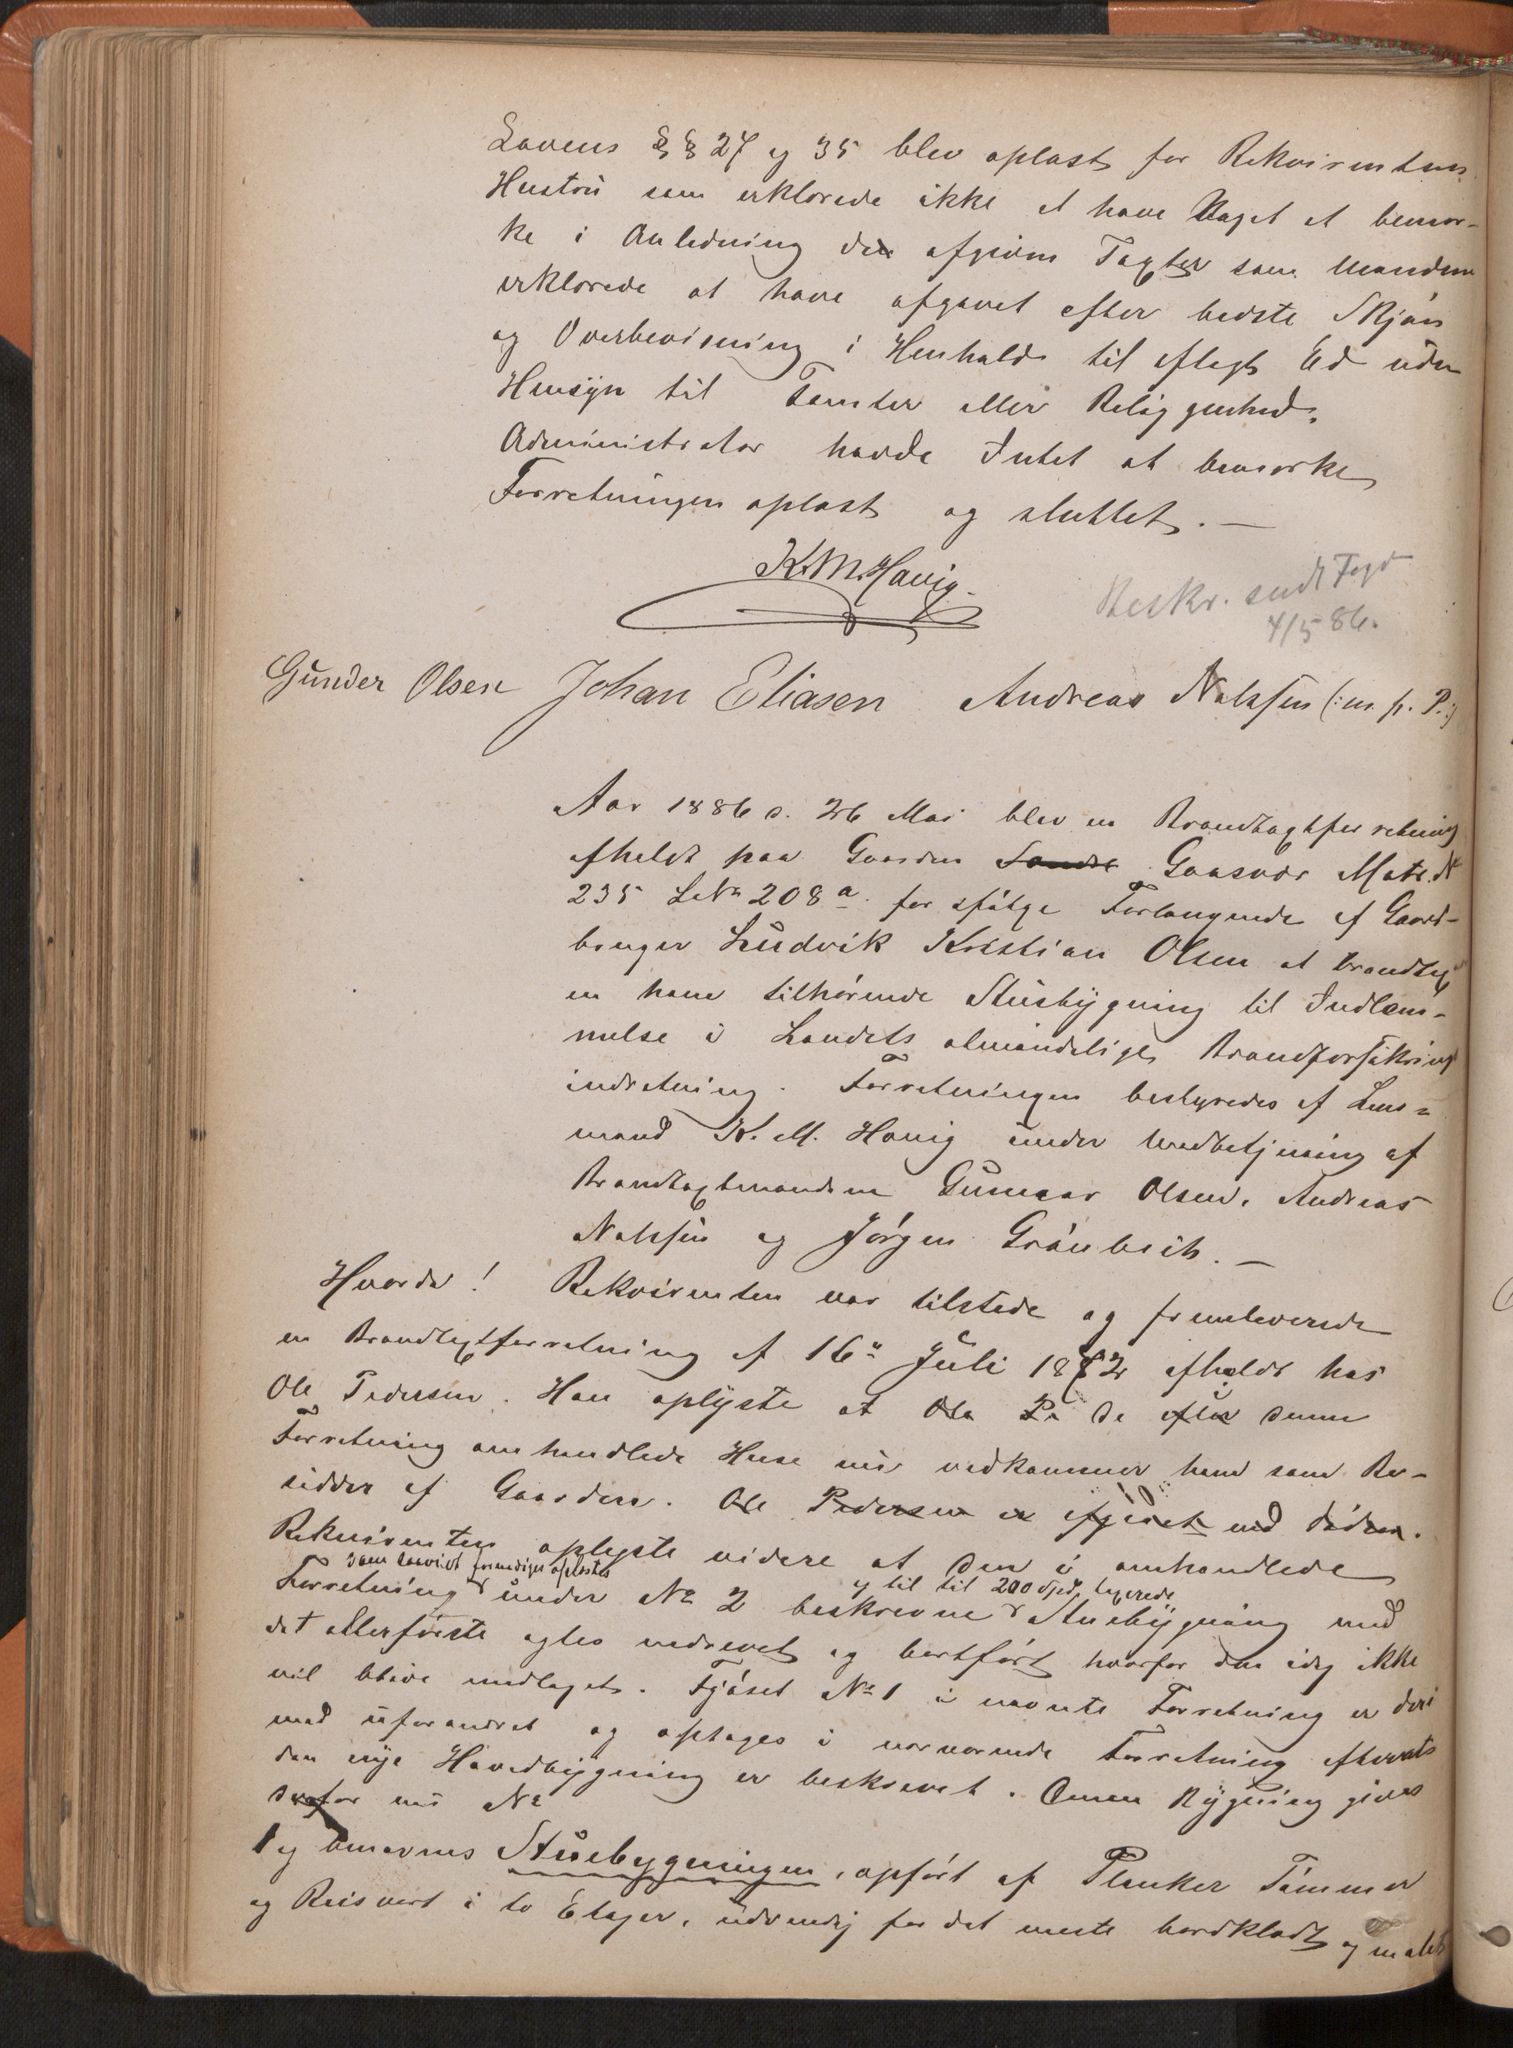 Lovens §§ 27 og 35 blev oplæst for Rekvirentens
Hustru som erklærede ikke at have Noget at bemær-
ke i Anledning den afgivne Taxter som Mændene
erklærede at have afgavet efter bedste Skjøn
og Overbevisning i Henhold til aflagt Ed uden
Hensyn til Tomter eller Beliggenhed.
Administrator havde Intet at bemærke
Forretningen oplæst og sluttet. —
K. M. Havig
Beskr. sendt Fogd
4/5 86.
Gunder Olsen Johan Eliasen Andreas (: m. p. P. :)
Aar 1886 d. 26 Mai blev en Brandtaxtforretning
afholdt paa Gaarden Sandr Gaasvær Matr. N
235 LNr 208a. for ifølge Forlangende af Gaard-
bruger Ludvik Kristian Olsen at brandtax
en ham tilhørende Stuebygning til Indlem-
melse i Landets almindelige Brandforsikrings
indretning. Forretningen bestyredes af Lens-
mand K. M. Havig under Medbetjening af
Brandtaxtmændene Gunnar Olsen, Andreas
og Jørgen Grønbech. —
Hvorda! Rekvirenten var tilstede og fremleverede
en Brandtaxtforretning af 16de Juli 1872 afholdt hos
Ole Pedersen. Han oplyste at Ole Pe de efter denne
Forretning omhandlede Huse nu vedkommer ham som Be-
sidder af Gaarden. Ole Pedersen er afgaaet ved døden.
Rekvirenten oplyste videre at den i omhandlede
som hvorvidt fremdiges oplæstes
og til til 200 Spd. taxerede
Forretning under No 2 beskrevne Stuebygning med
det allerførste agtes nedrevet og bortført hvorfor den idag ikke
vil blive medtaget. Fjøset No 1 i nævnte Forretning er deri
mod uforandret og optages i nærværende Forretning efterat
den nye Hovedbygning er beskrevet. Denne Bygning gives
derfor nu No
1 og benævnes Stuebygningen, opført af Planker Tømmer
og Reisvert i to Etager, udvendig for det meste bordklædt og malet